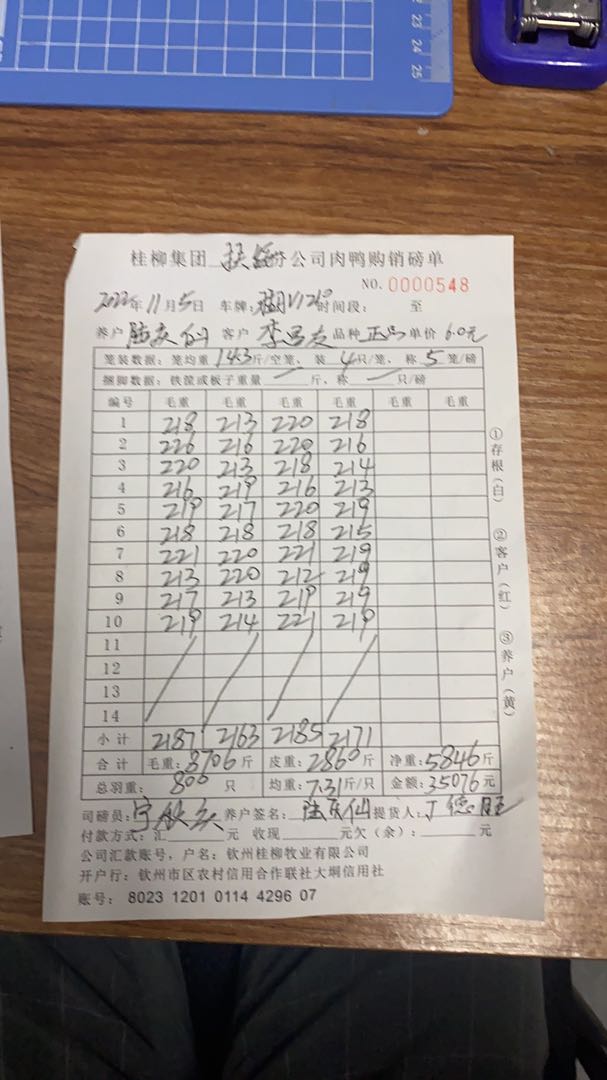 22 23 24 25
桂柳集团 扶绥分公司肉鸭购销磅单
NO. 0000548
2022年11月5日 车牌: 时间段: 至
养户 客户 品种 正品 单价 6.0元
笼装数据:笼均重 14.3斤/空笼、装 4只/笼、称 5笼/磅
捆脚数据:铁筐或板子重量 — 斤、称 — 只/磅
编号 毛重 毛重 毛重 毛重 毛重 毛重
1 218 213 220 218
2 226 216 220 216
3 220 213 218 214
4 216 219 216 213
5 219 217 220 219
6 218 218 218 215
7 221 220 221 219
8 213 220 212 219
9 217 213 219 219
10 219 214 221 219
11
12
13
14
小计 2187 2163 2185 2171
合计 毛重:8706斤 皮重:2860斤 净重:5846斤
总羽重: 800 只 均重:7.31斤/只 金额:35076元
司磅员: 养户签名: 提货人:丁德旺
付款方式:汇 元 收现 元欠(余): 元
公司汇款账号,户名:钦州桂柳牧业有限公司
开户行:钦州市区农村信用合作联社大垌信用社
账号: 8023 1201 0114 4296 07
①存根(白)
②客户(红)
③养户(黄)